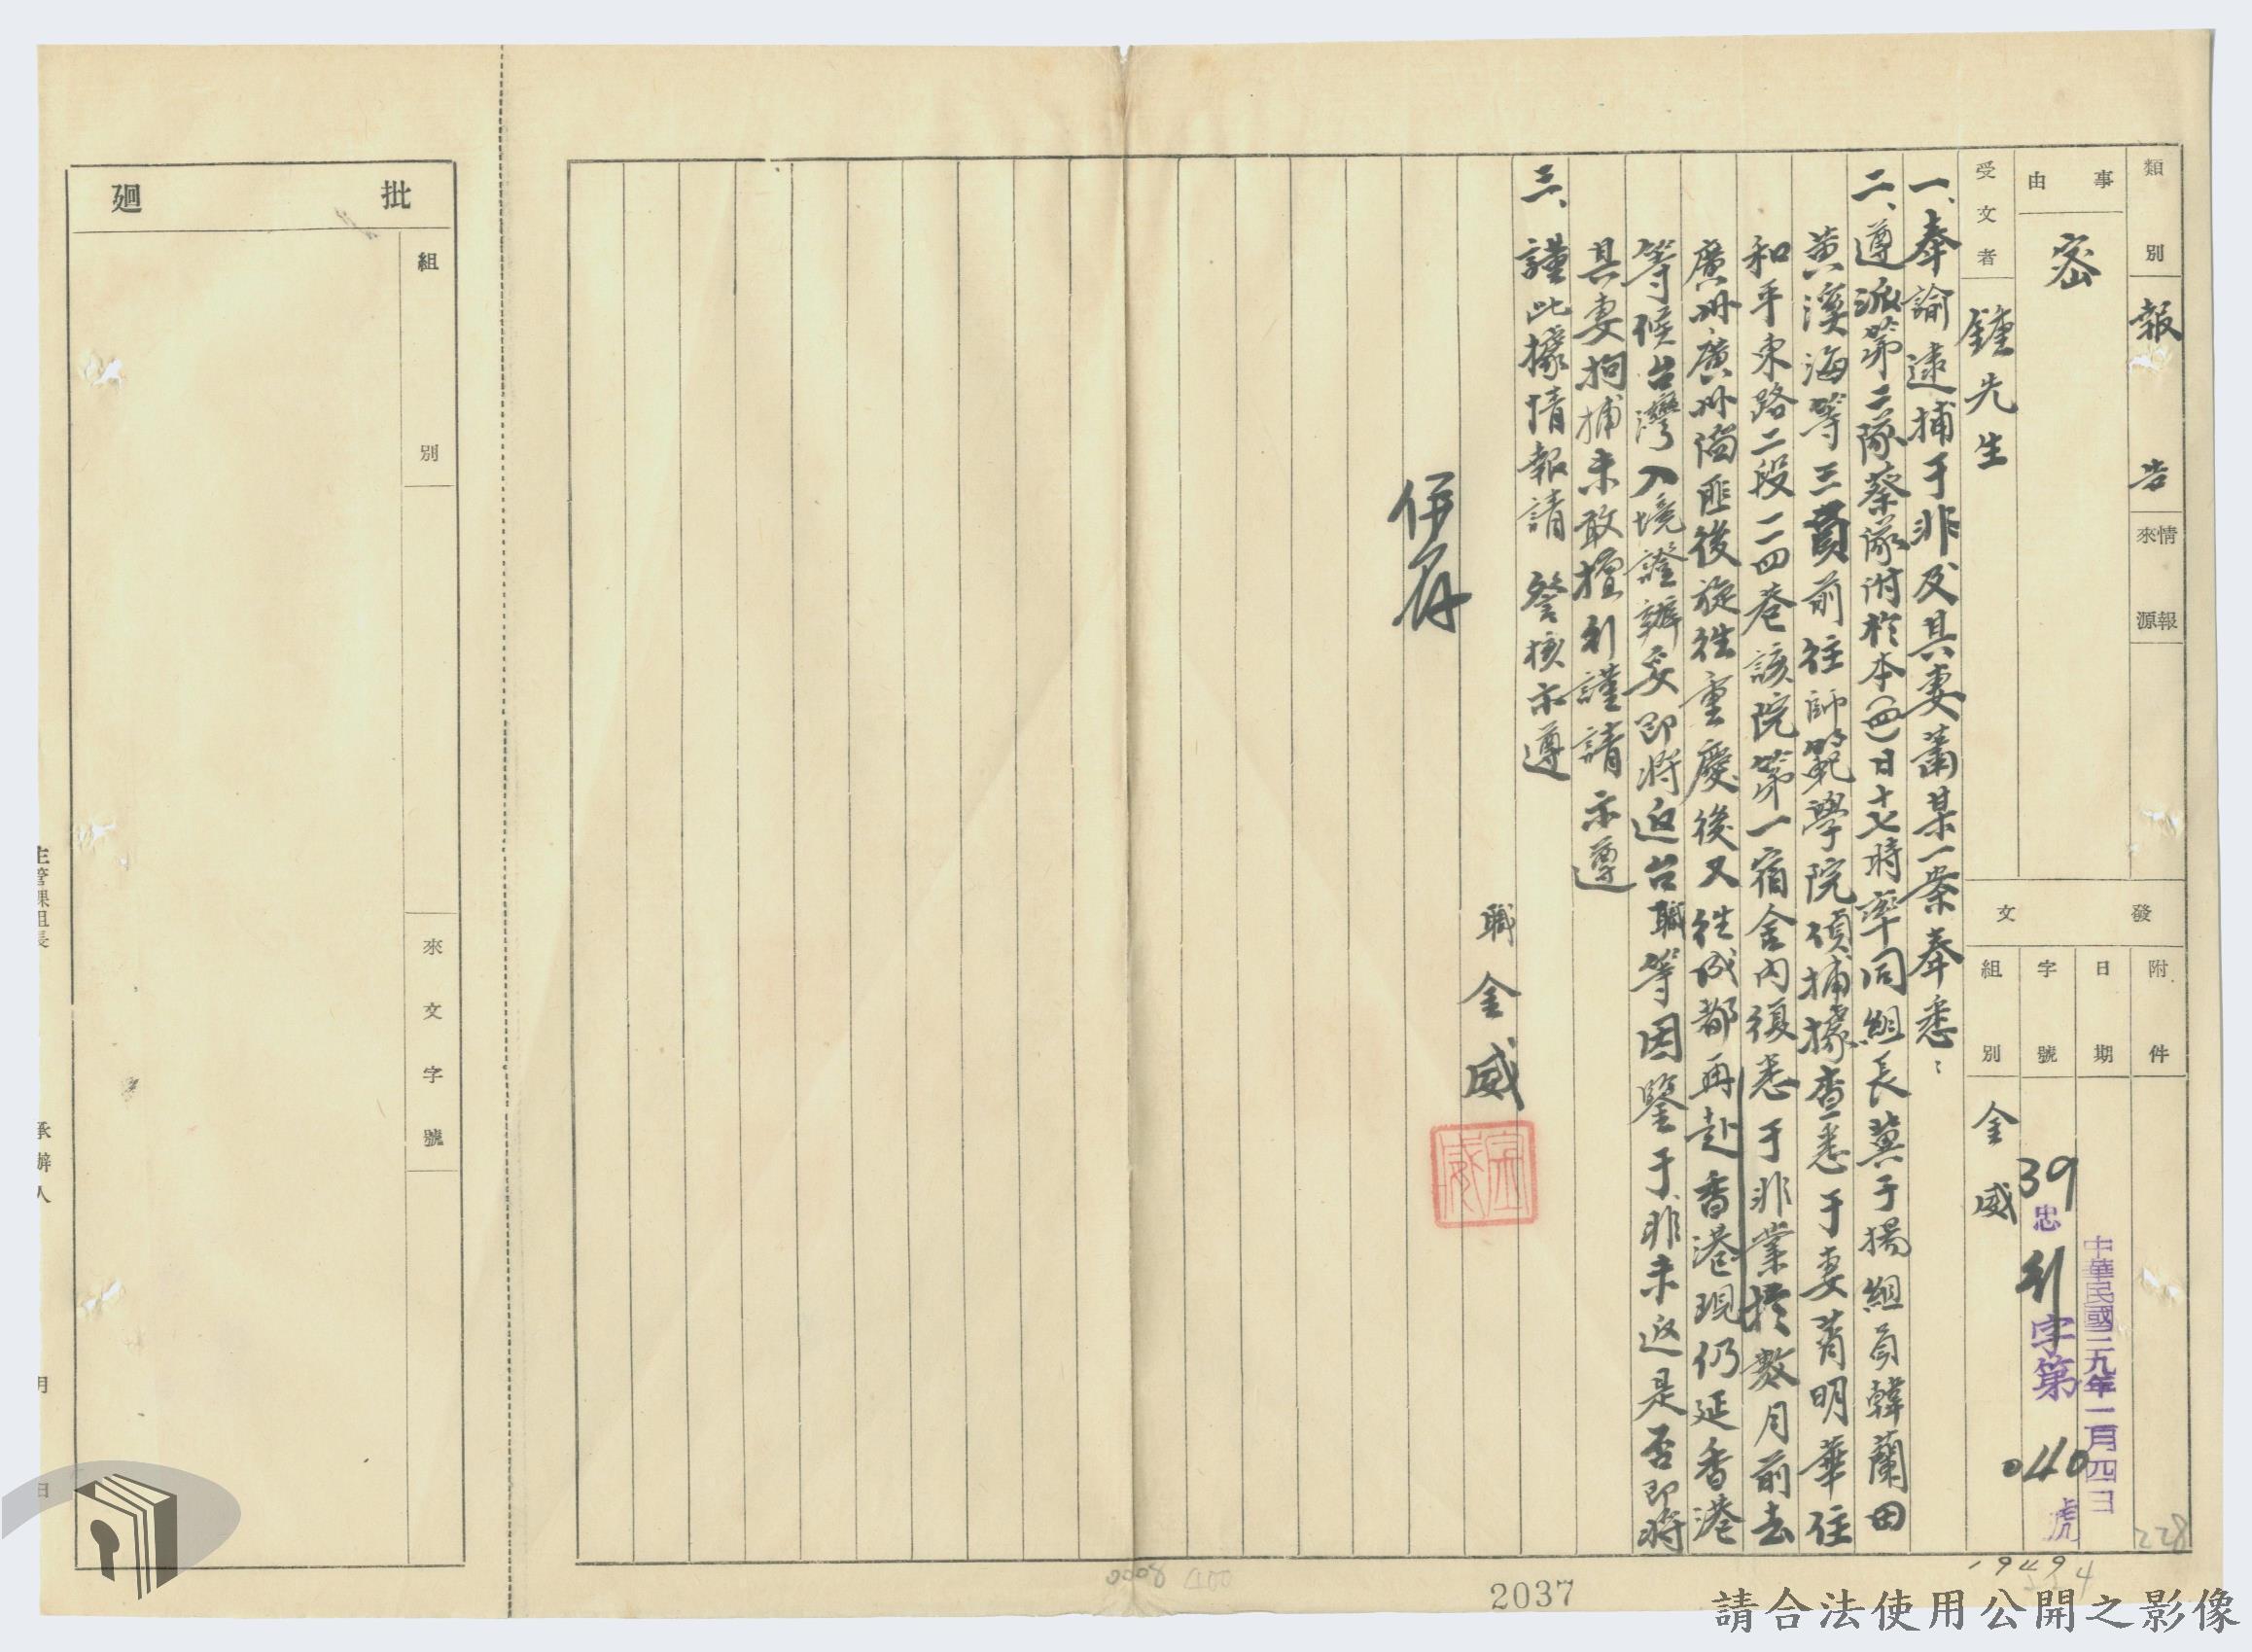 類別 報告
情報來源
事由 密
受文者 鍾先生
發文
附件
日期 中華民國三九年一月四日
字號 39忠利字第040號
組別 金威
一、奉諭逮捕于非及其妻蕭某一案奉悉：
二、遵派第二隊蔡隊附於本(四)日十七時率同組長冀于揚組員韓蘭田
黃溪海等三員前往師範學院偵捕據查悉于妻蕭明華住
和平東路二段二四巷該院第一宿舍內復悉于非業於數月前去
廣州廣州淪匪後旋往重慶後又往成都再赴香港現仍延香港
等候台灣入境證辦妥即將返台職等因鑒于非未返是否即將
其妻拘捕未敢擅利謹請示遵
三、謹此據情報請 詧核示遵
職 金威
併存
批廻
組別
來文字號
主管課組長
承辦人
月
日
228
2037
請合法使用公開之影像